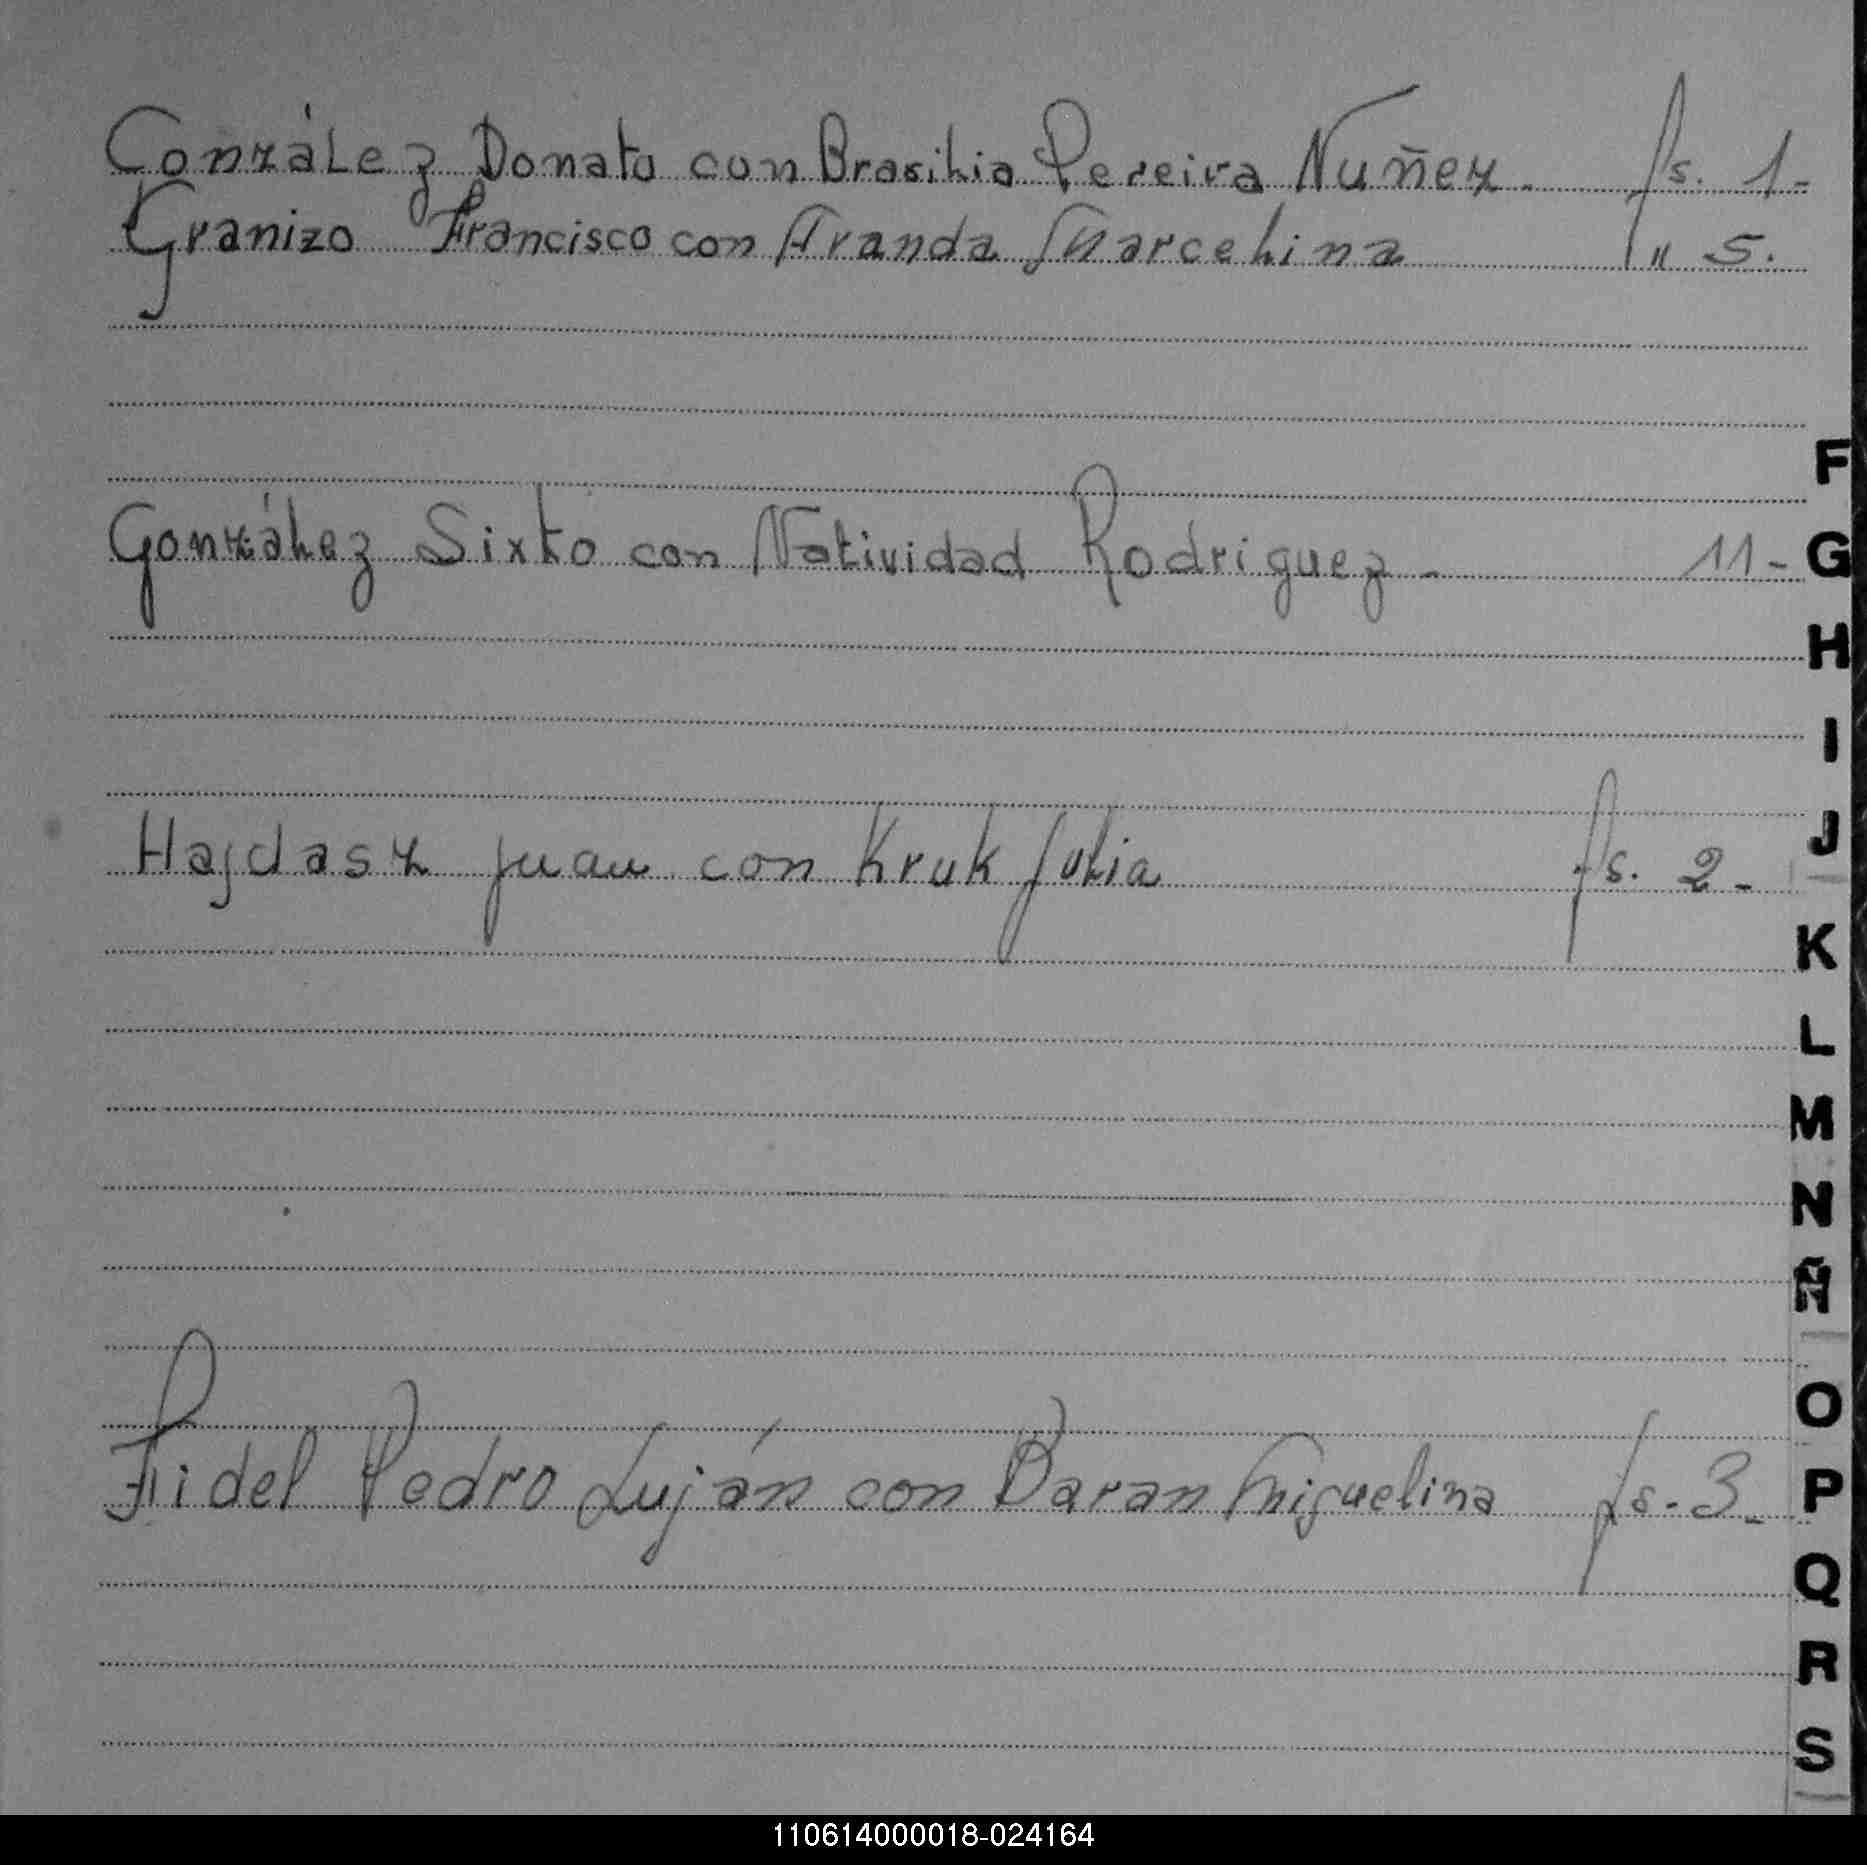 González Donato con Brasilia Pereira Nuñez. fs. 1-
Granizo Francisco con Aranda Marcelina " 5.
F
González Sixto con Natividad Rodriguez - 11-
G
H
I
J
Hajdasz Juan con Kruk Julia fs. 2-
K
L
M
N
Ñ
O
Fidel Pedro Luján con Baran Miguelina fs. 3-
P
Q
R
S
110614000018-024164